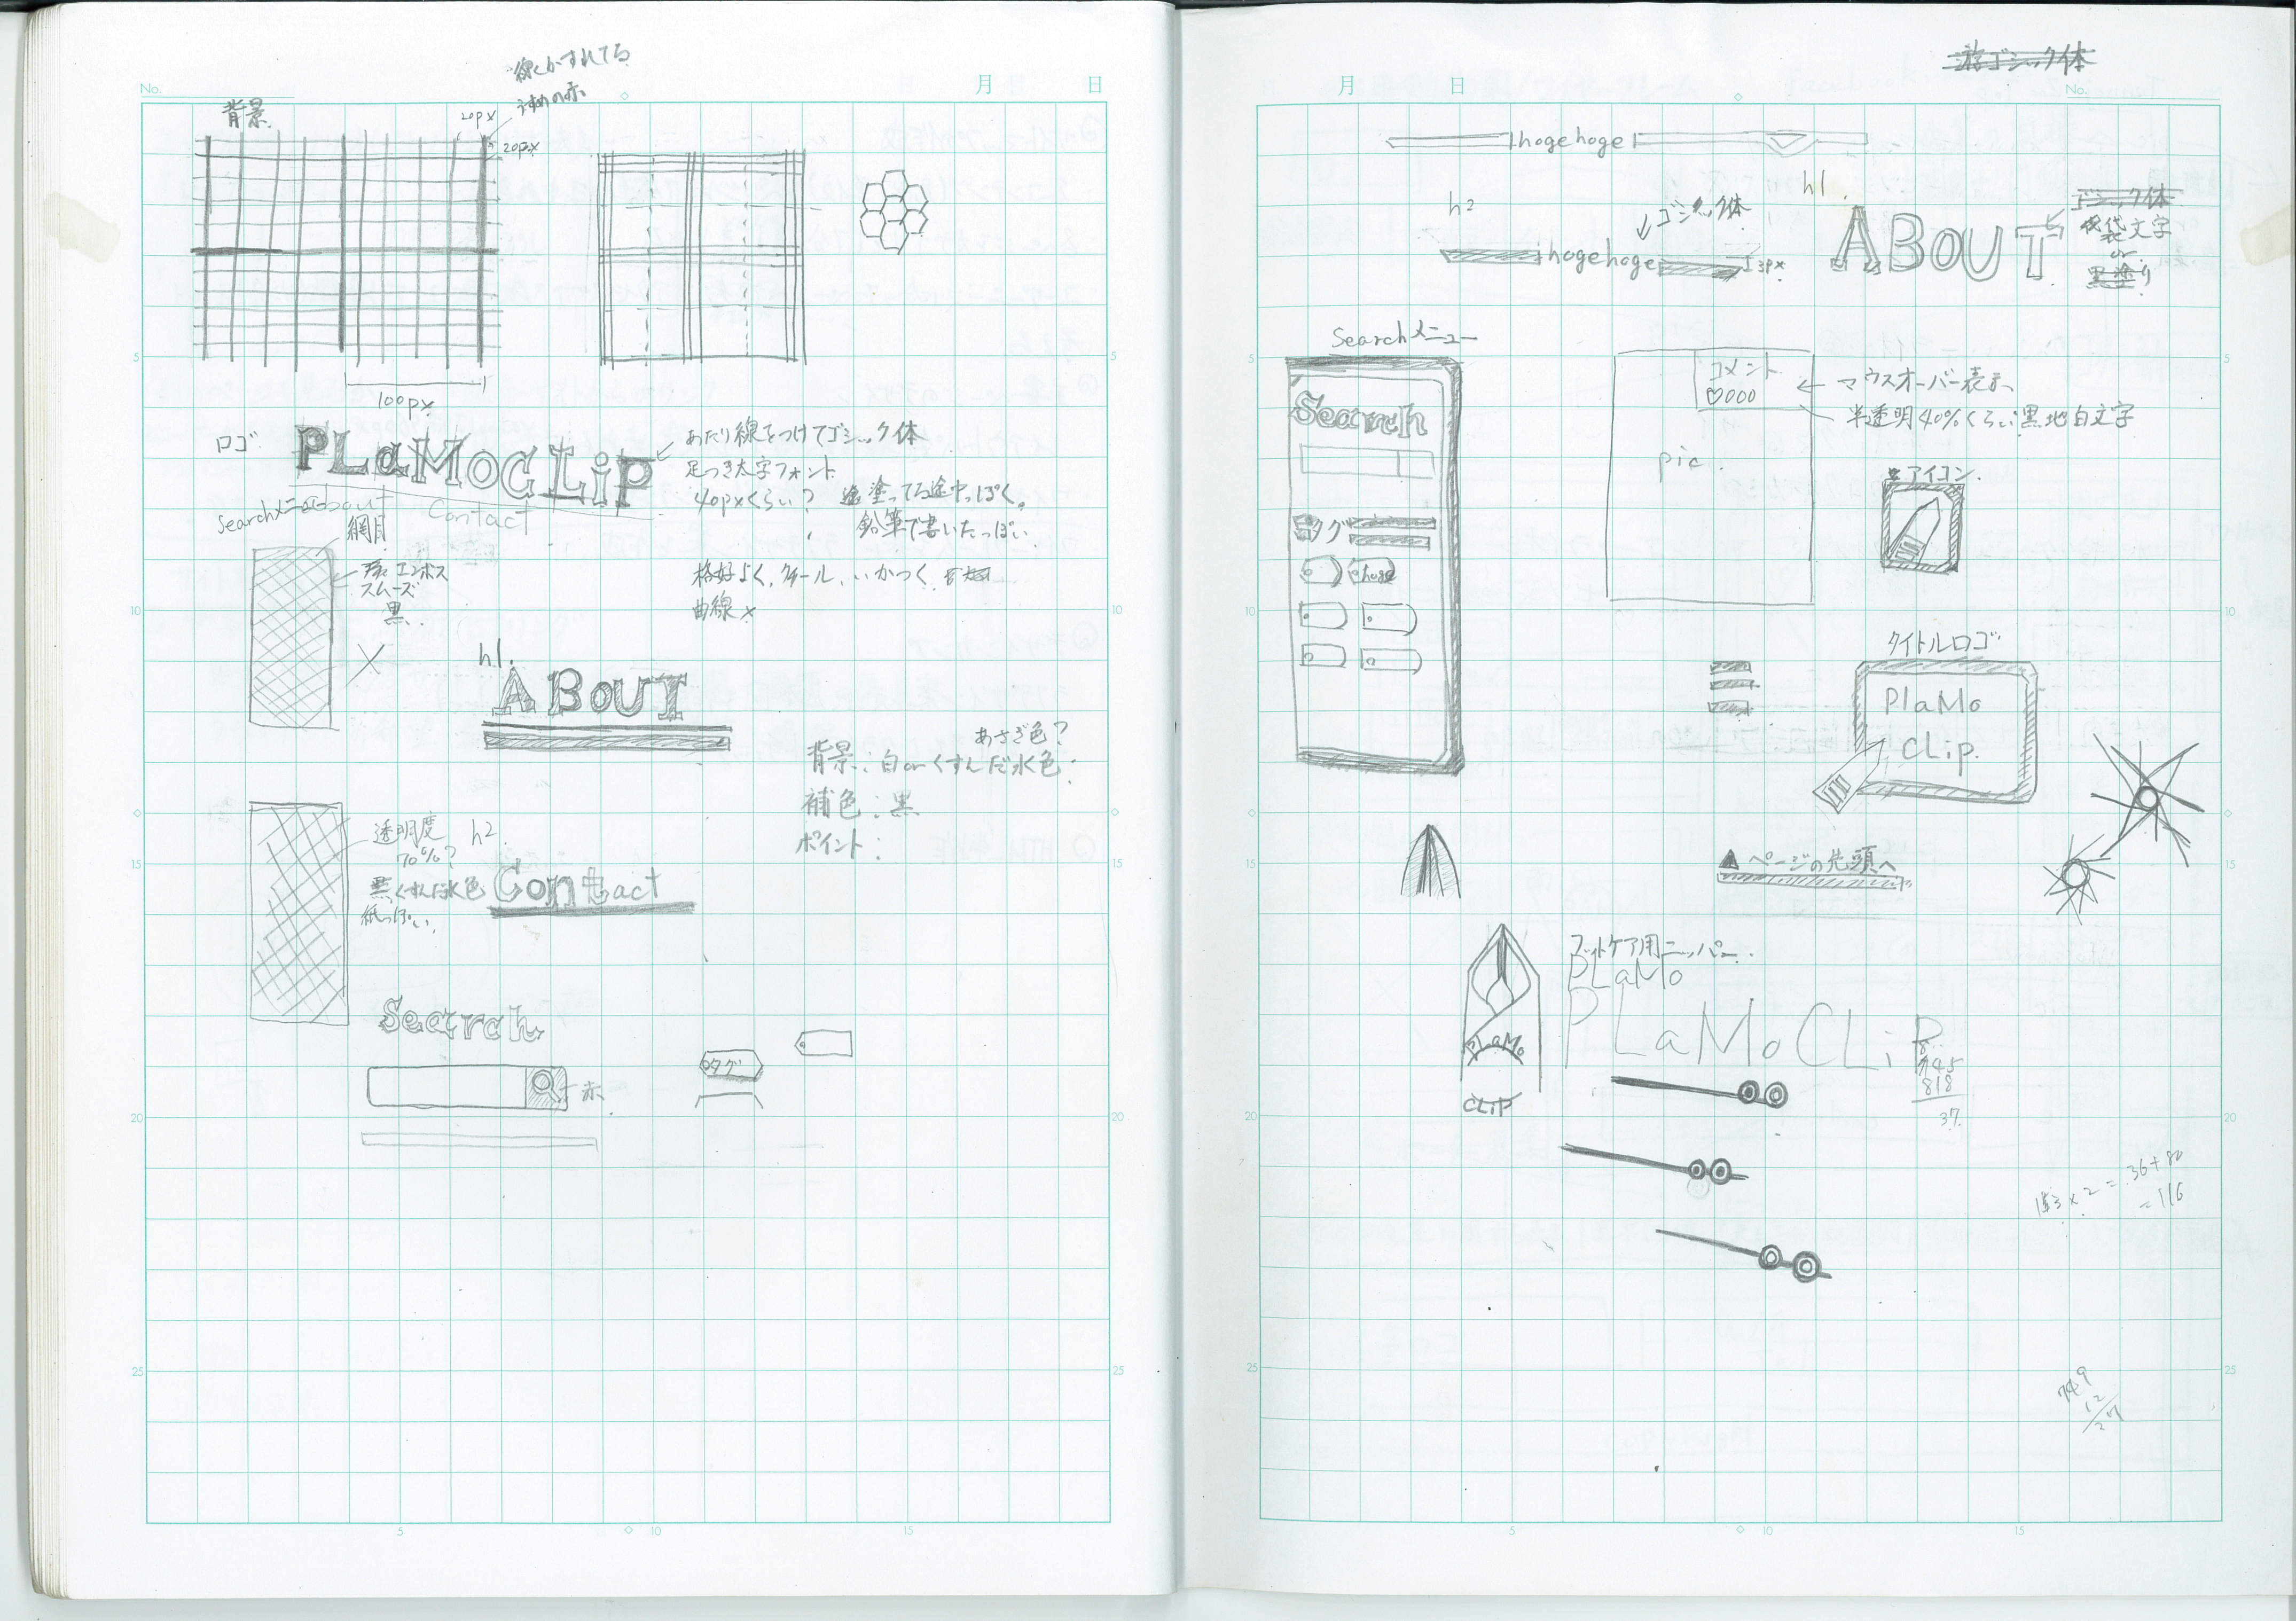 No.
月
日
線かすれてる
うすめの赤
背景
20px
20px
100px
ロゴ
PLaMoCLiP
あたり線をつけてゴシック体
足つき太字フォント
40pxくらい?
塗ってる途中っぽく。
鉛筆で書いたっぽい
Searchメニュー
about
Contact
網目
エンボス
スムーズ
黒
格好よく、クール、いかつく
曲線×
h1.
ABOUT
あさぎ色?
背景:白orくすんだ水色
補色:黒
ポイント:
透明度
70%?
黒くすんだ水色
紙っぽい
h2.
Contact
Search
赤
タグ
5
10
15
20
25
5
10
15
月
日
No.
游ゴシック体
hogehoge
h2
ゴシック体
hogehoge
3px
h1
ABOUT
ゴシック体
袋文字
or
黒塗り
Searchメニュー
Search
タグ
hoge
コメント
♡000
マウスオーバー表示
半透明40%くらい黒地白文字
pic.
アイコン
タイトルロゴ
PlaMo
CLip.
▲ページの先頭へ
フットケア用ニッパー
PLaMo
PLaMoCLiP
PLaMo
CLiP
745
818
37.
×2=36+80
=116
749
12
5
10
15
20
25
5
10
15